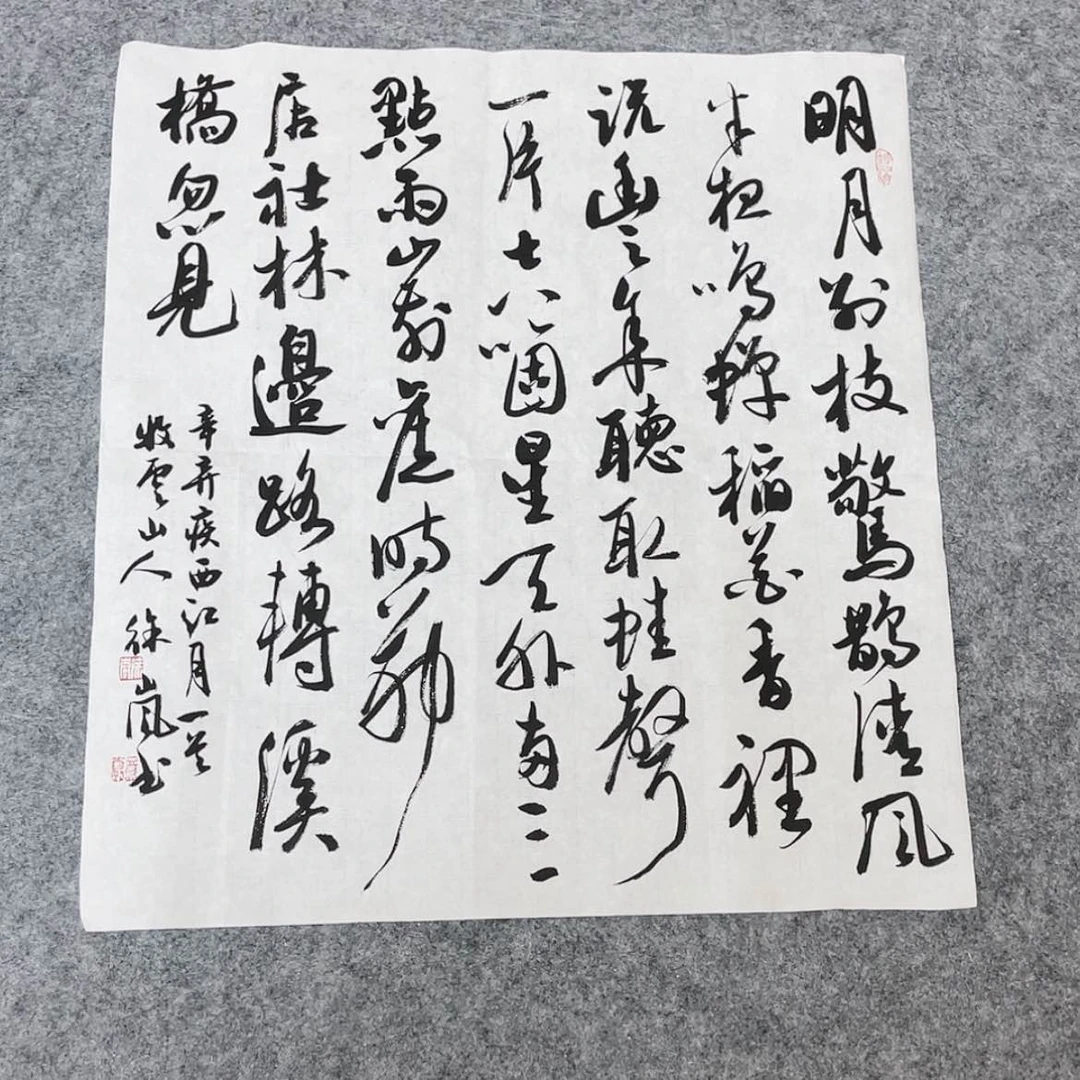 明月别枝驚鵲清風
半夜鳴蟬稻花香裡
説豐年聽取蛙聲
一片七八箇星天外兩三
點雨山前舊時茅
店社林邊路轉溪
橋忽見
辛弃疾西江月一首
雲山人徐嵐书